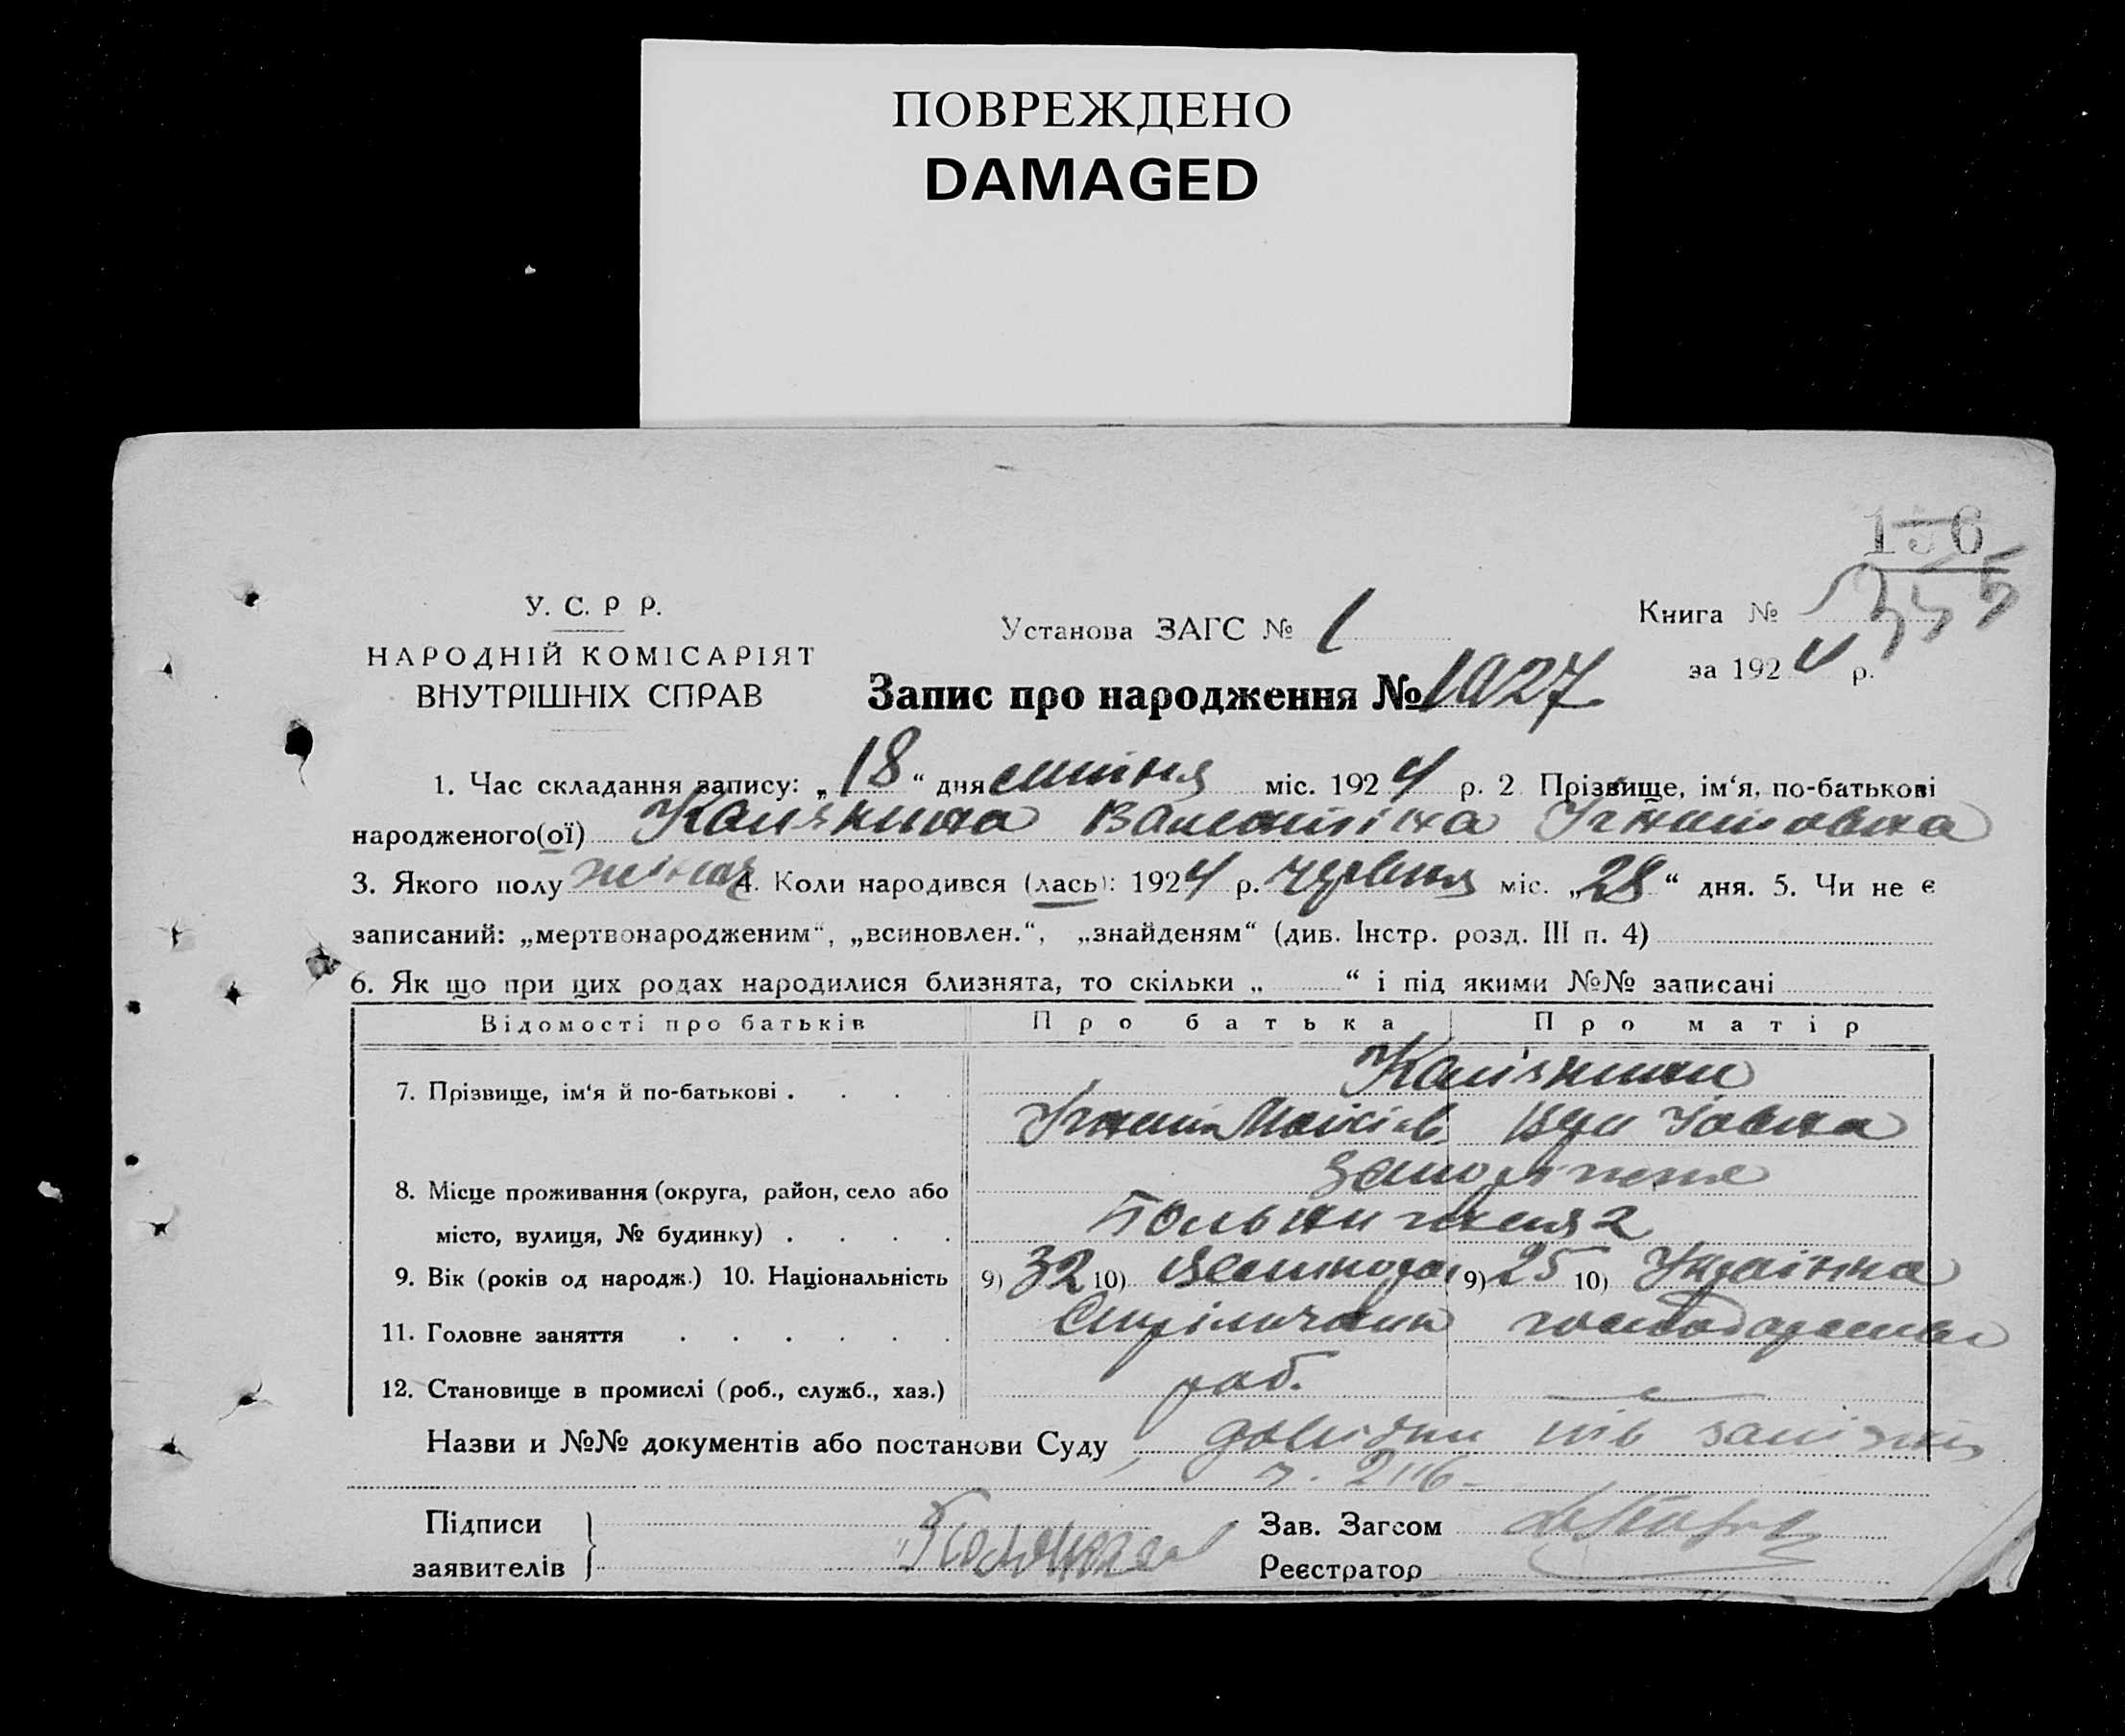 ПОВРЕЖДЕНО
DAMAGED
156
355
У. С. Р Р.
НАРОДНІЙ КОМІСАРІЯТ
ВНУТРІШНІХ СПРАВ
Установа ЗАГС № 1
Книга №
за 1924 р.
Запис про народження № 1027
1. Час складання запису: „18“ дня липня міс. 1924 р. 2 Прізвище, ім‘я, по-батькові
народженого(ої) Валентіна Ігнатовна
3. Якого полу жіноч 4. Коли народився (лась): 1924 р. червня міс. „28“ дня. 5. Чи не є
записаний: „мертвонародженим“, „всиновлен.“, „знайденям“ (див. Інстр. розд. III п. 4)
6. Як що при цих родах народилися близнята, то скільки „ “ і під якими №№ записані
Відомості про батьків Про батька Про матір
7. Прізвище, ім‘я й по-батькові . . . .
Ігнат
8. Місце проживання (округа, район, село або
місто, вулиця, № будинку) . . . .
9. Вік (років од народж.) 10. Національність 9) 32 10) 9) 25 10) Українка
11. Головне заняття . . . . . .
12. Становище в промислі (роб., служб., хаз.) роб. —
Назви и №№ документів або постанови Суду
Підписи
заявителів
Зав. Загсом
Реєстратор